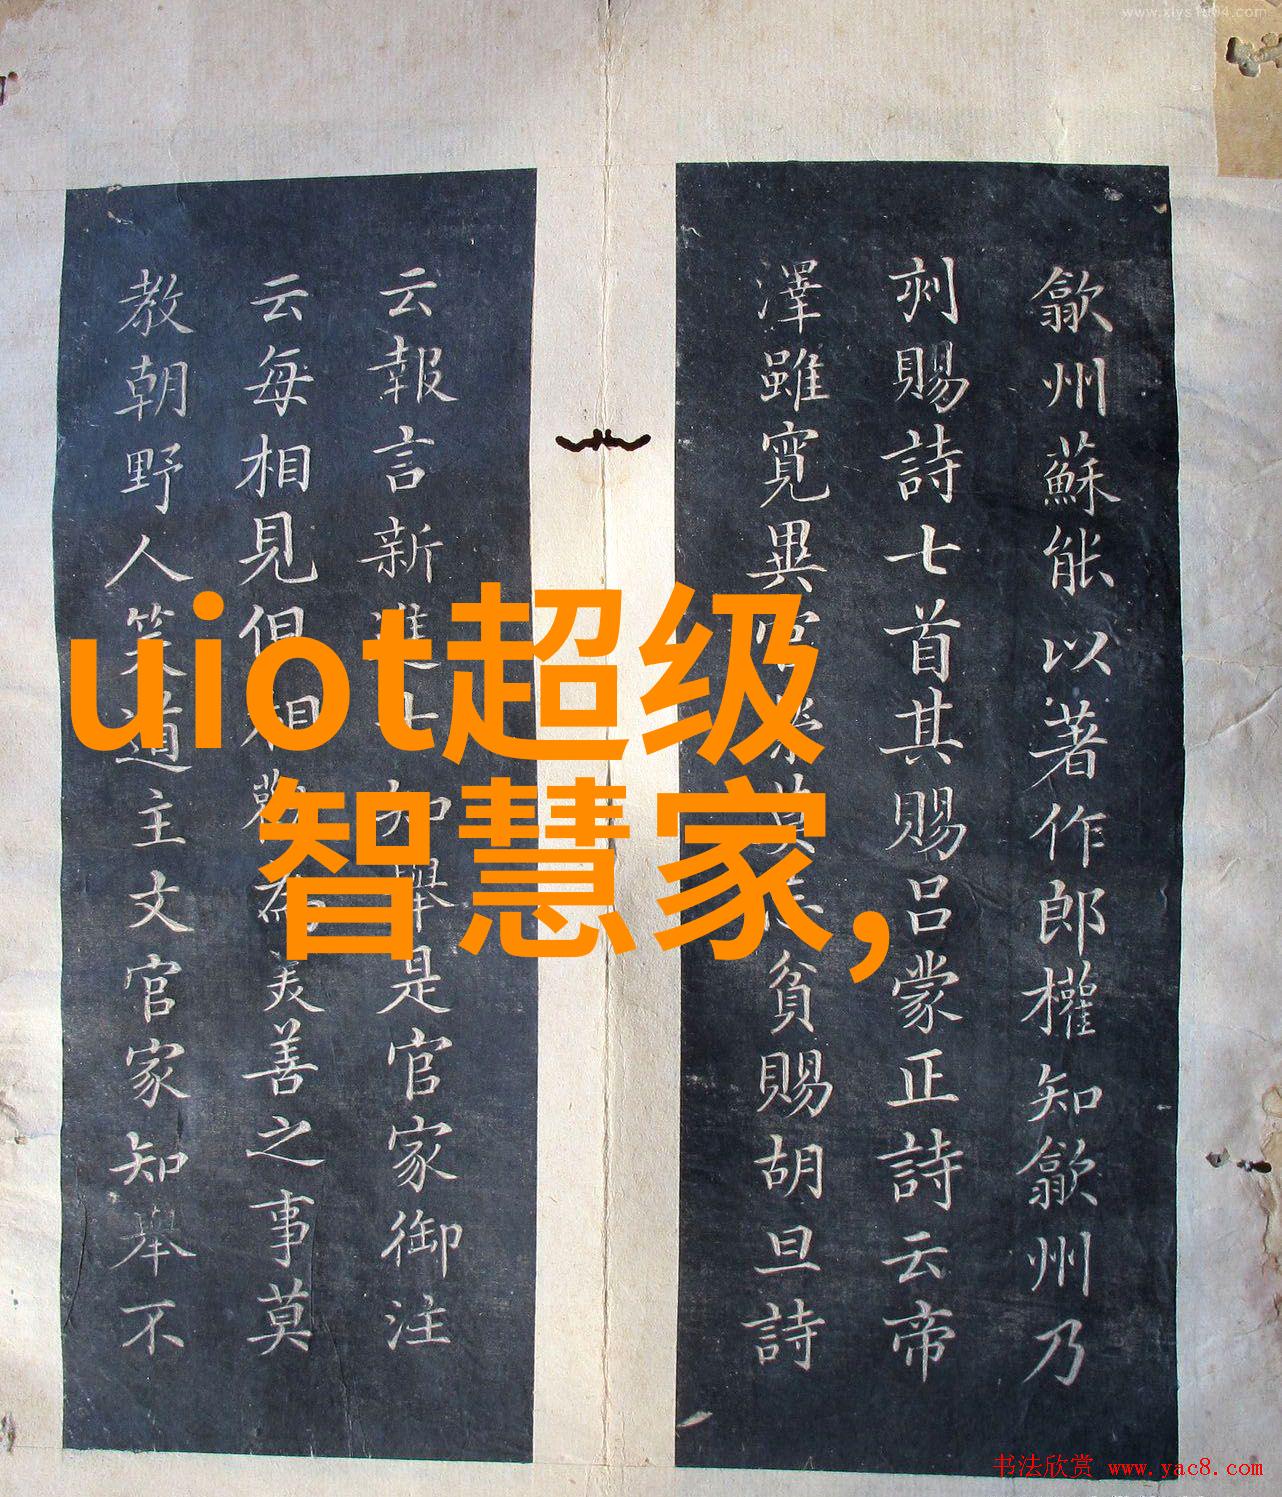 www.xiys1004.com
歙州蘇能以著作郎權知歙州乃
刾賜詩七首其賜呂蒙正詩云帝
澤雖寛異 貧賜胡旦詩
云報言新進士 舉是官家御注
云每相見但相 為美善之事莫
教朝野人笑道主文官家知舉不
uiot超级
智慧家,
书法欣赏 www.yac8.com